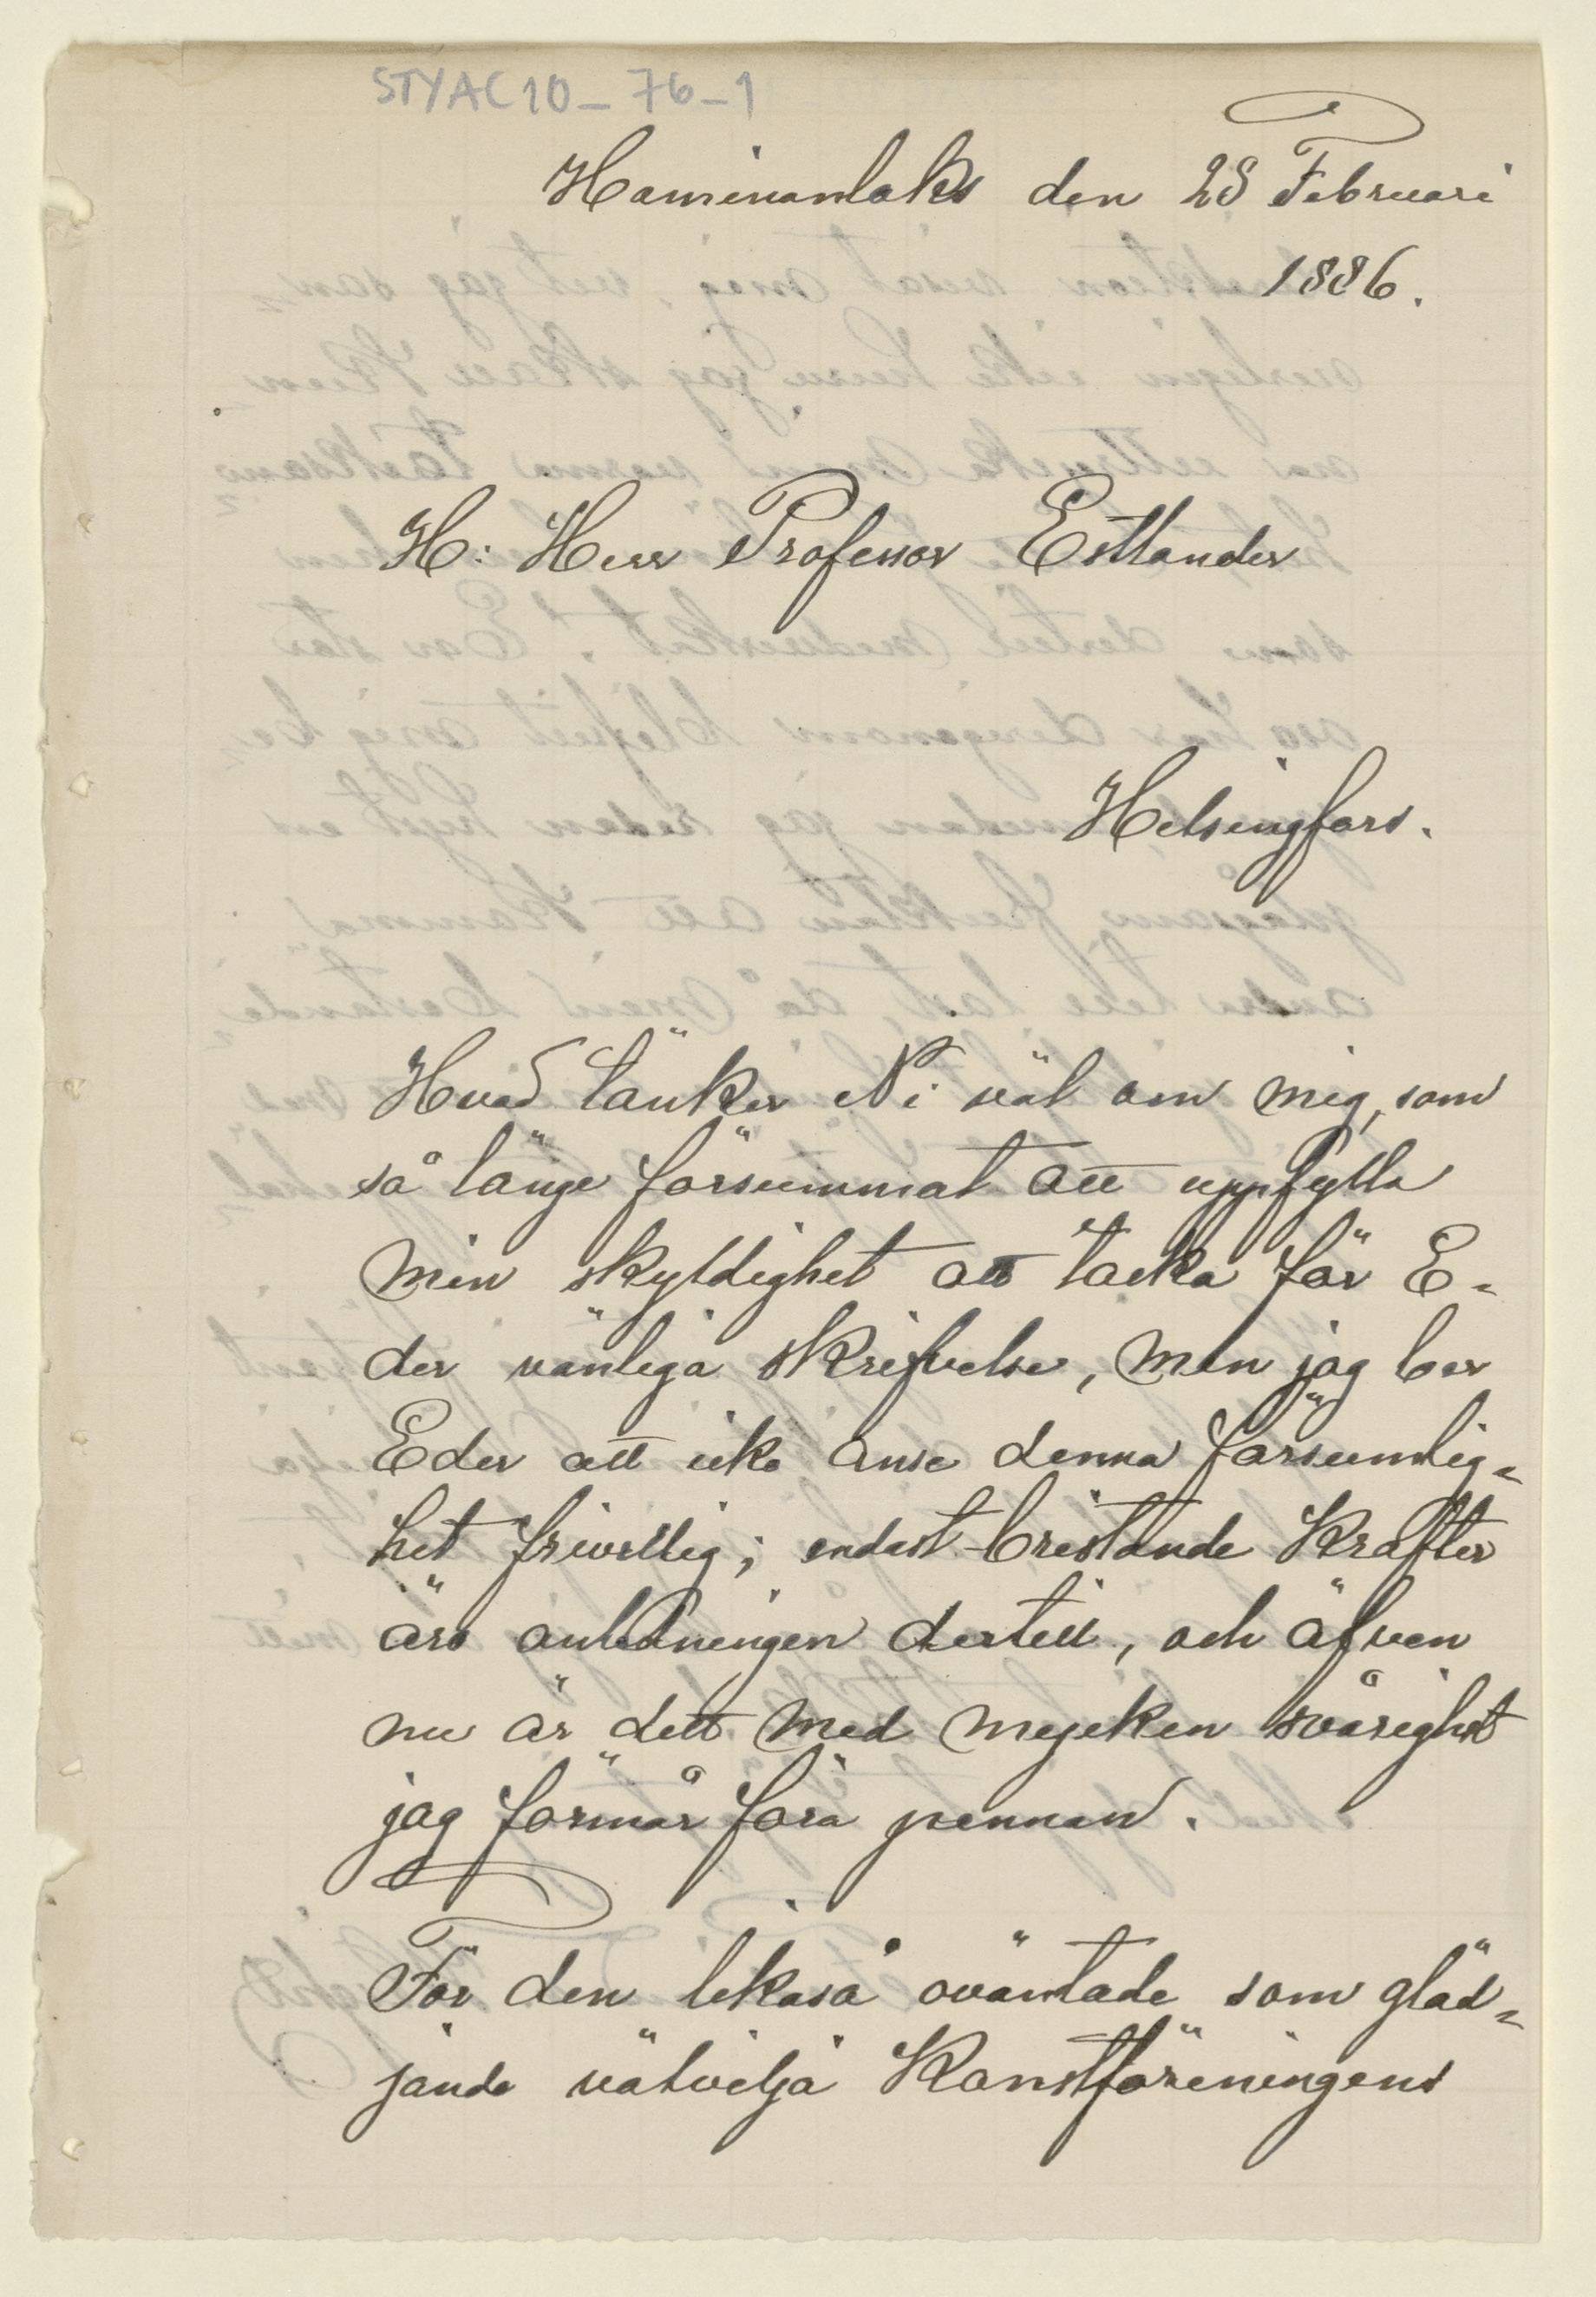 STYAC10_76_1
Haminanlaks den 28 Februari
1886.
H: Herr Professor Estlander
Helsingfors.
Hvad tänker Ni väl om mig, som
så länge försummat att uppfylla
min skyldighet att tacka för E-
der vänliga skrifvelse, men jag ber
Eder att icke anse denna försumlig-
het frivillig; endast bristande krafter
äro anledningen dertill, och äfven
nu är dett med mycken svårighet
jag förmår föra pennan.
För den likaså oväntade som gläd-
jande välvilja Konstföreningens